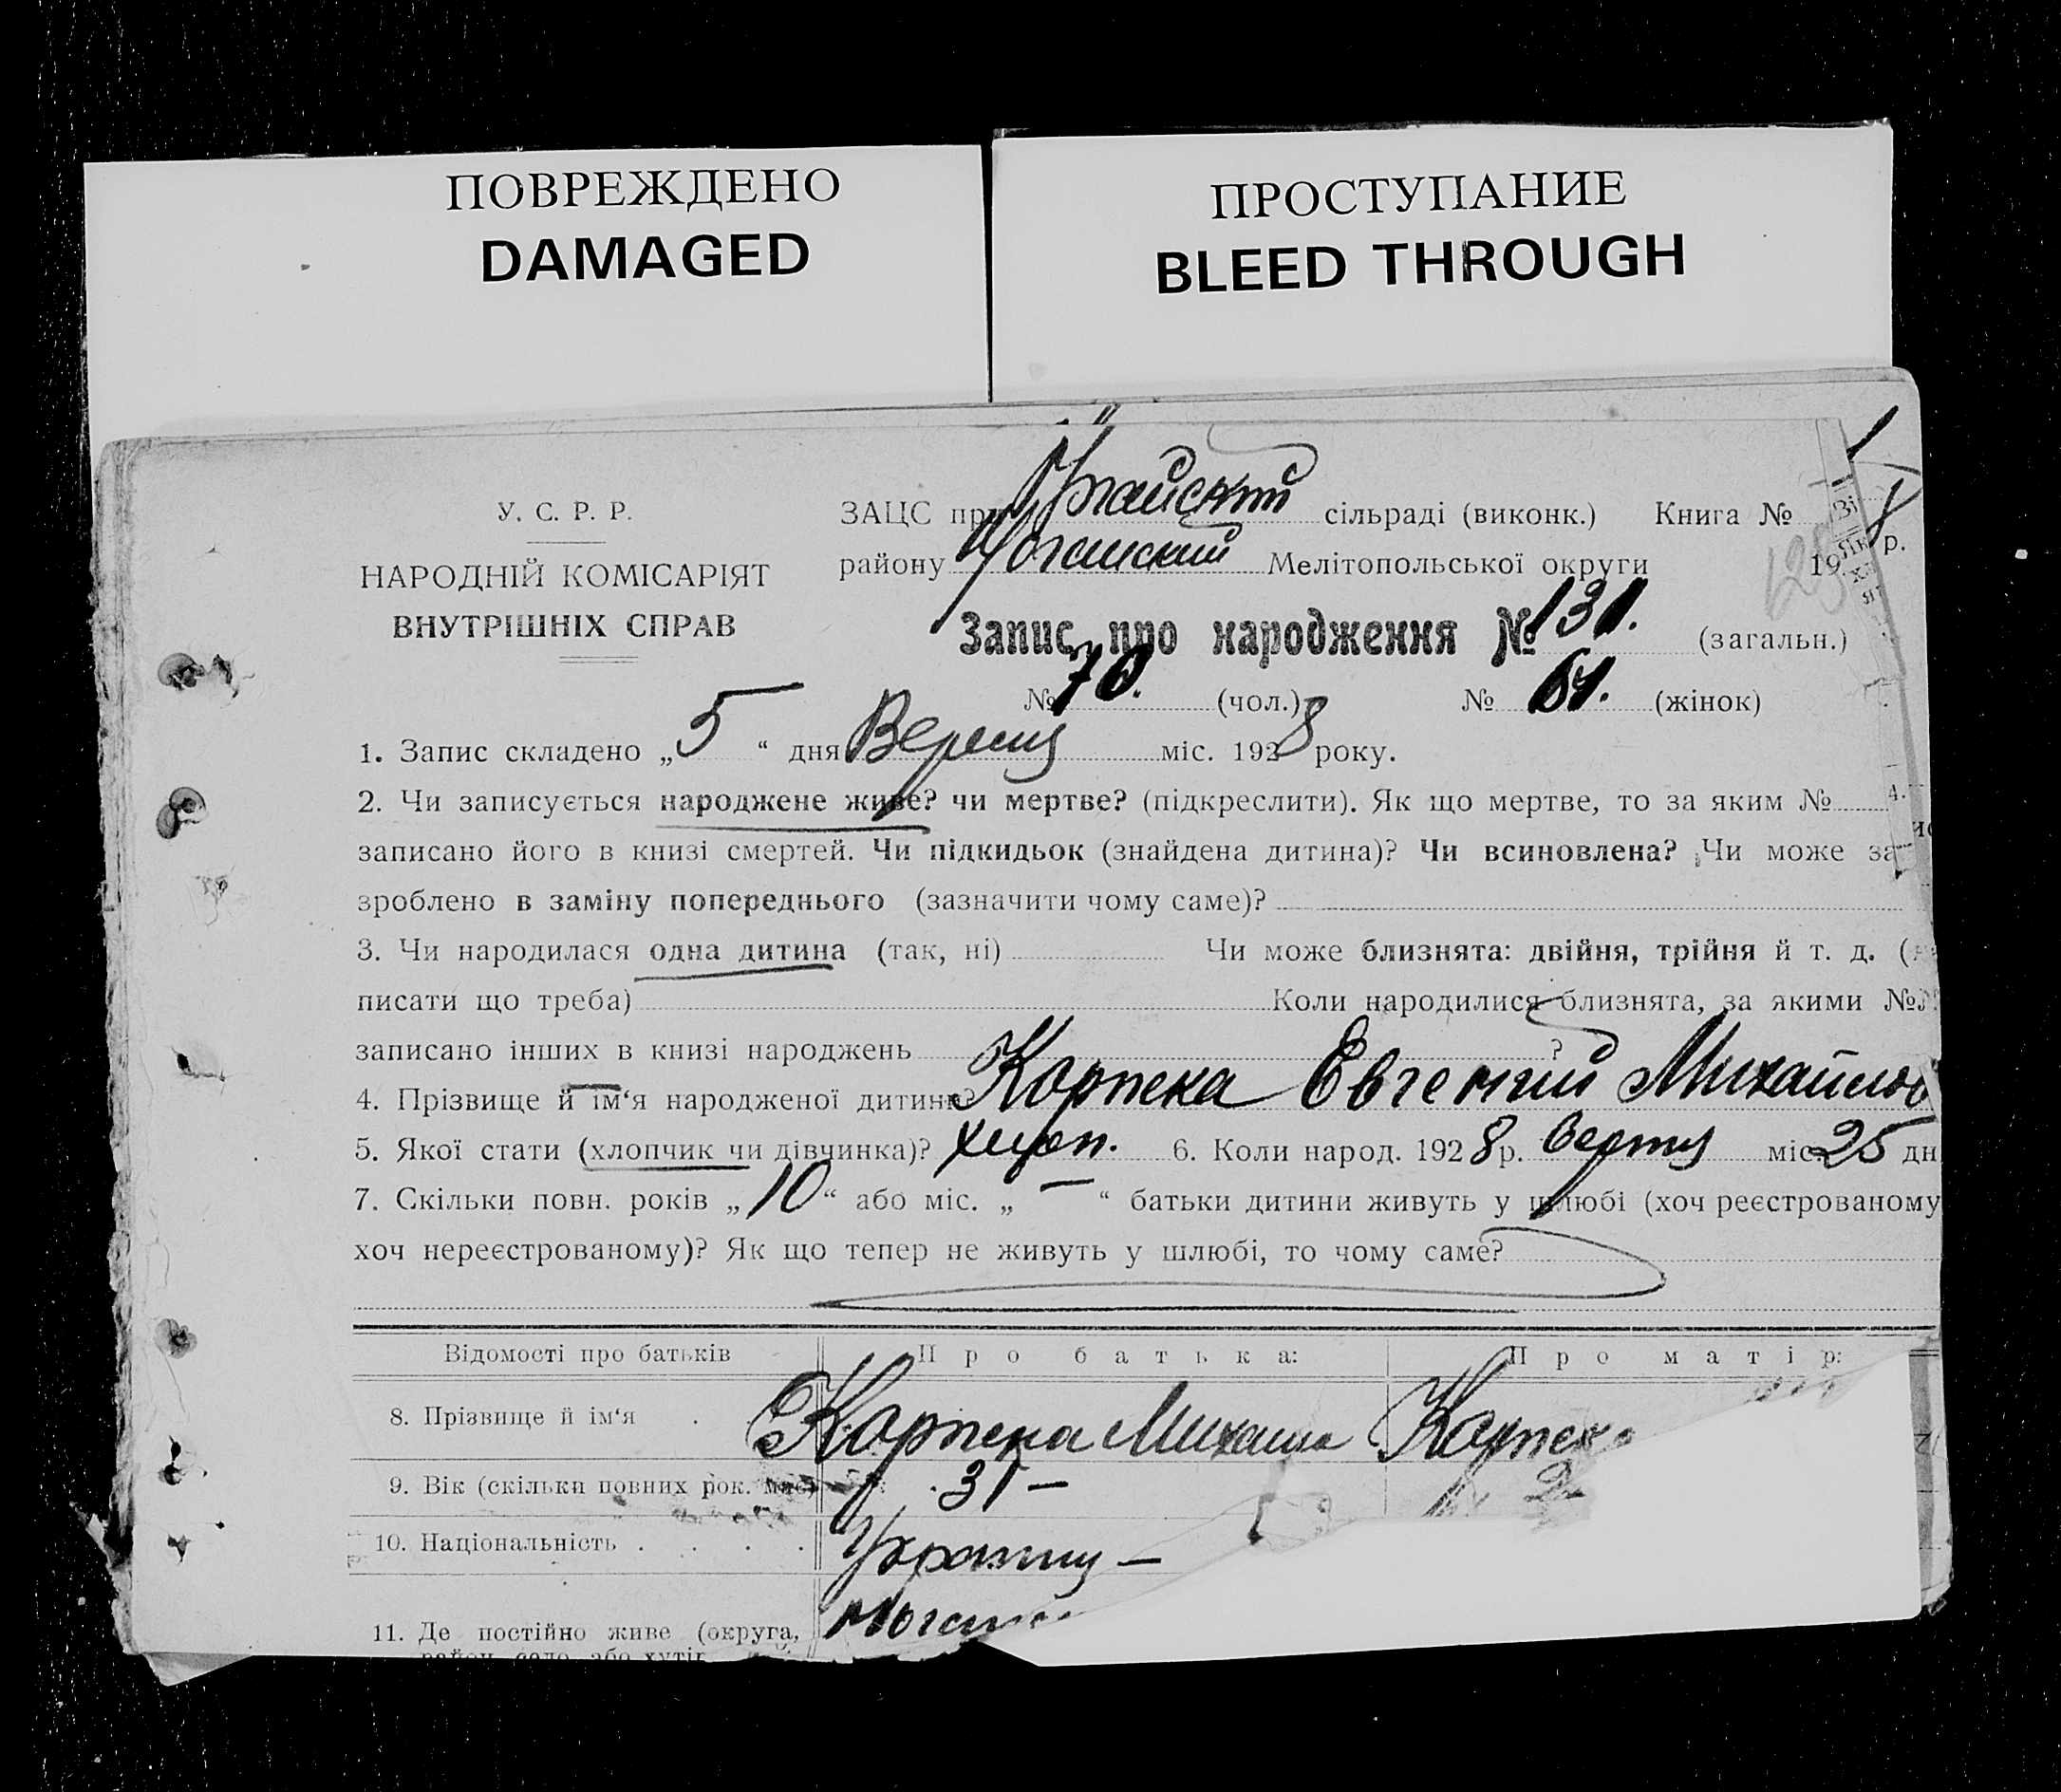 ПОВРЕЖДЕНО
DAMAGED
ПРОСТУПАНИЕ
BLEED THROUGH
У. С. Р. Р.
НАРОДНІЙ КОМІСАРІЯТ
ВНУТРІШНІХ СПРАВ
ЗАЦС при сільраді (виконк.) Книга №
району Мелітопольської округи 19 р.
Запис про народження № 131. (загальн.)
№ 70. (чол.) № 61. (жінок)
1. Запис складено „5“ дня міс. 1928 року.
2. Чи записується народжене живе? чи мертве? (підкреслити). Як що мертве, то за яким №
записано його в книзі смертей. Чи підкидьок (знайдена дитина)? Чи всиновлена? Чи може за
зроблено в заміну попереднього (зазначити чому саме)?
3. Чи народилася одна дитина (так, ні) Чи може близнята: двійня, трійня й т. д. (
писати що треба) Коли народилися близнята, за якими №№
записано інших в книзі народжень ?
4. Прізвище й ім‘я народженої дитини? Карпека Евгений Михайлов
5. Якої стати (хлопчик чи дівчинка)? хлоп. 6. Коли народ. 1928 р. міс. 25 дн
7. Скільки повн. років „10“ або міс. „—“ батьки дитини живуть у шлюбі (хоч реєстрованому
хоч нереєстрованому)? Як що тепер не живуть у шлюбі, то чому саме?
Відомості про батьків Про батька: Про матір:
8. Прізвище й ім‘я Карпека Михаил Карпека
9. Вік (скільки повних рок. міс) 31 —
10. Національність
11. Де постійно живе (округа,
район, село, або хутір